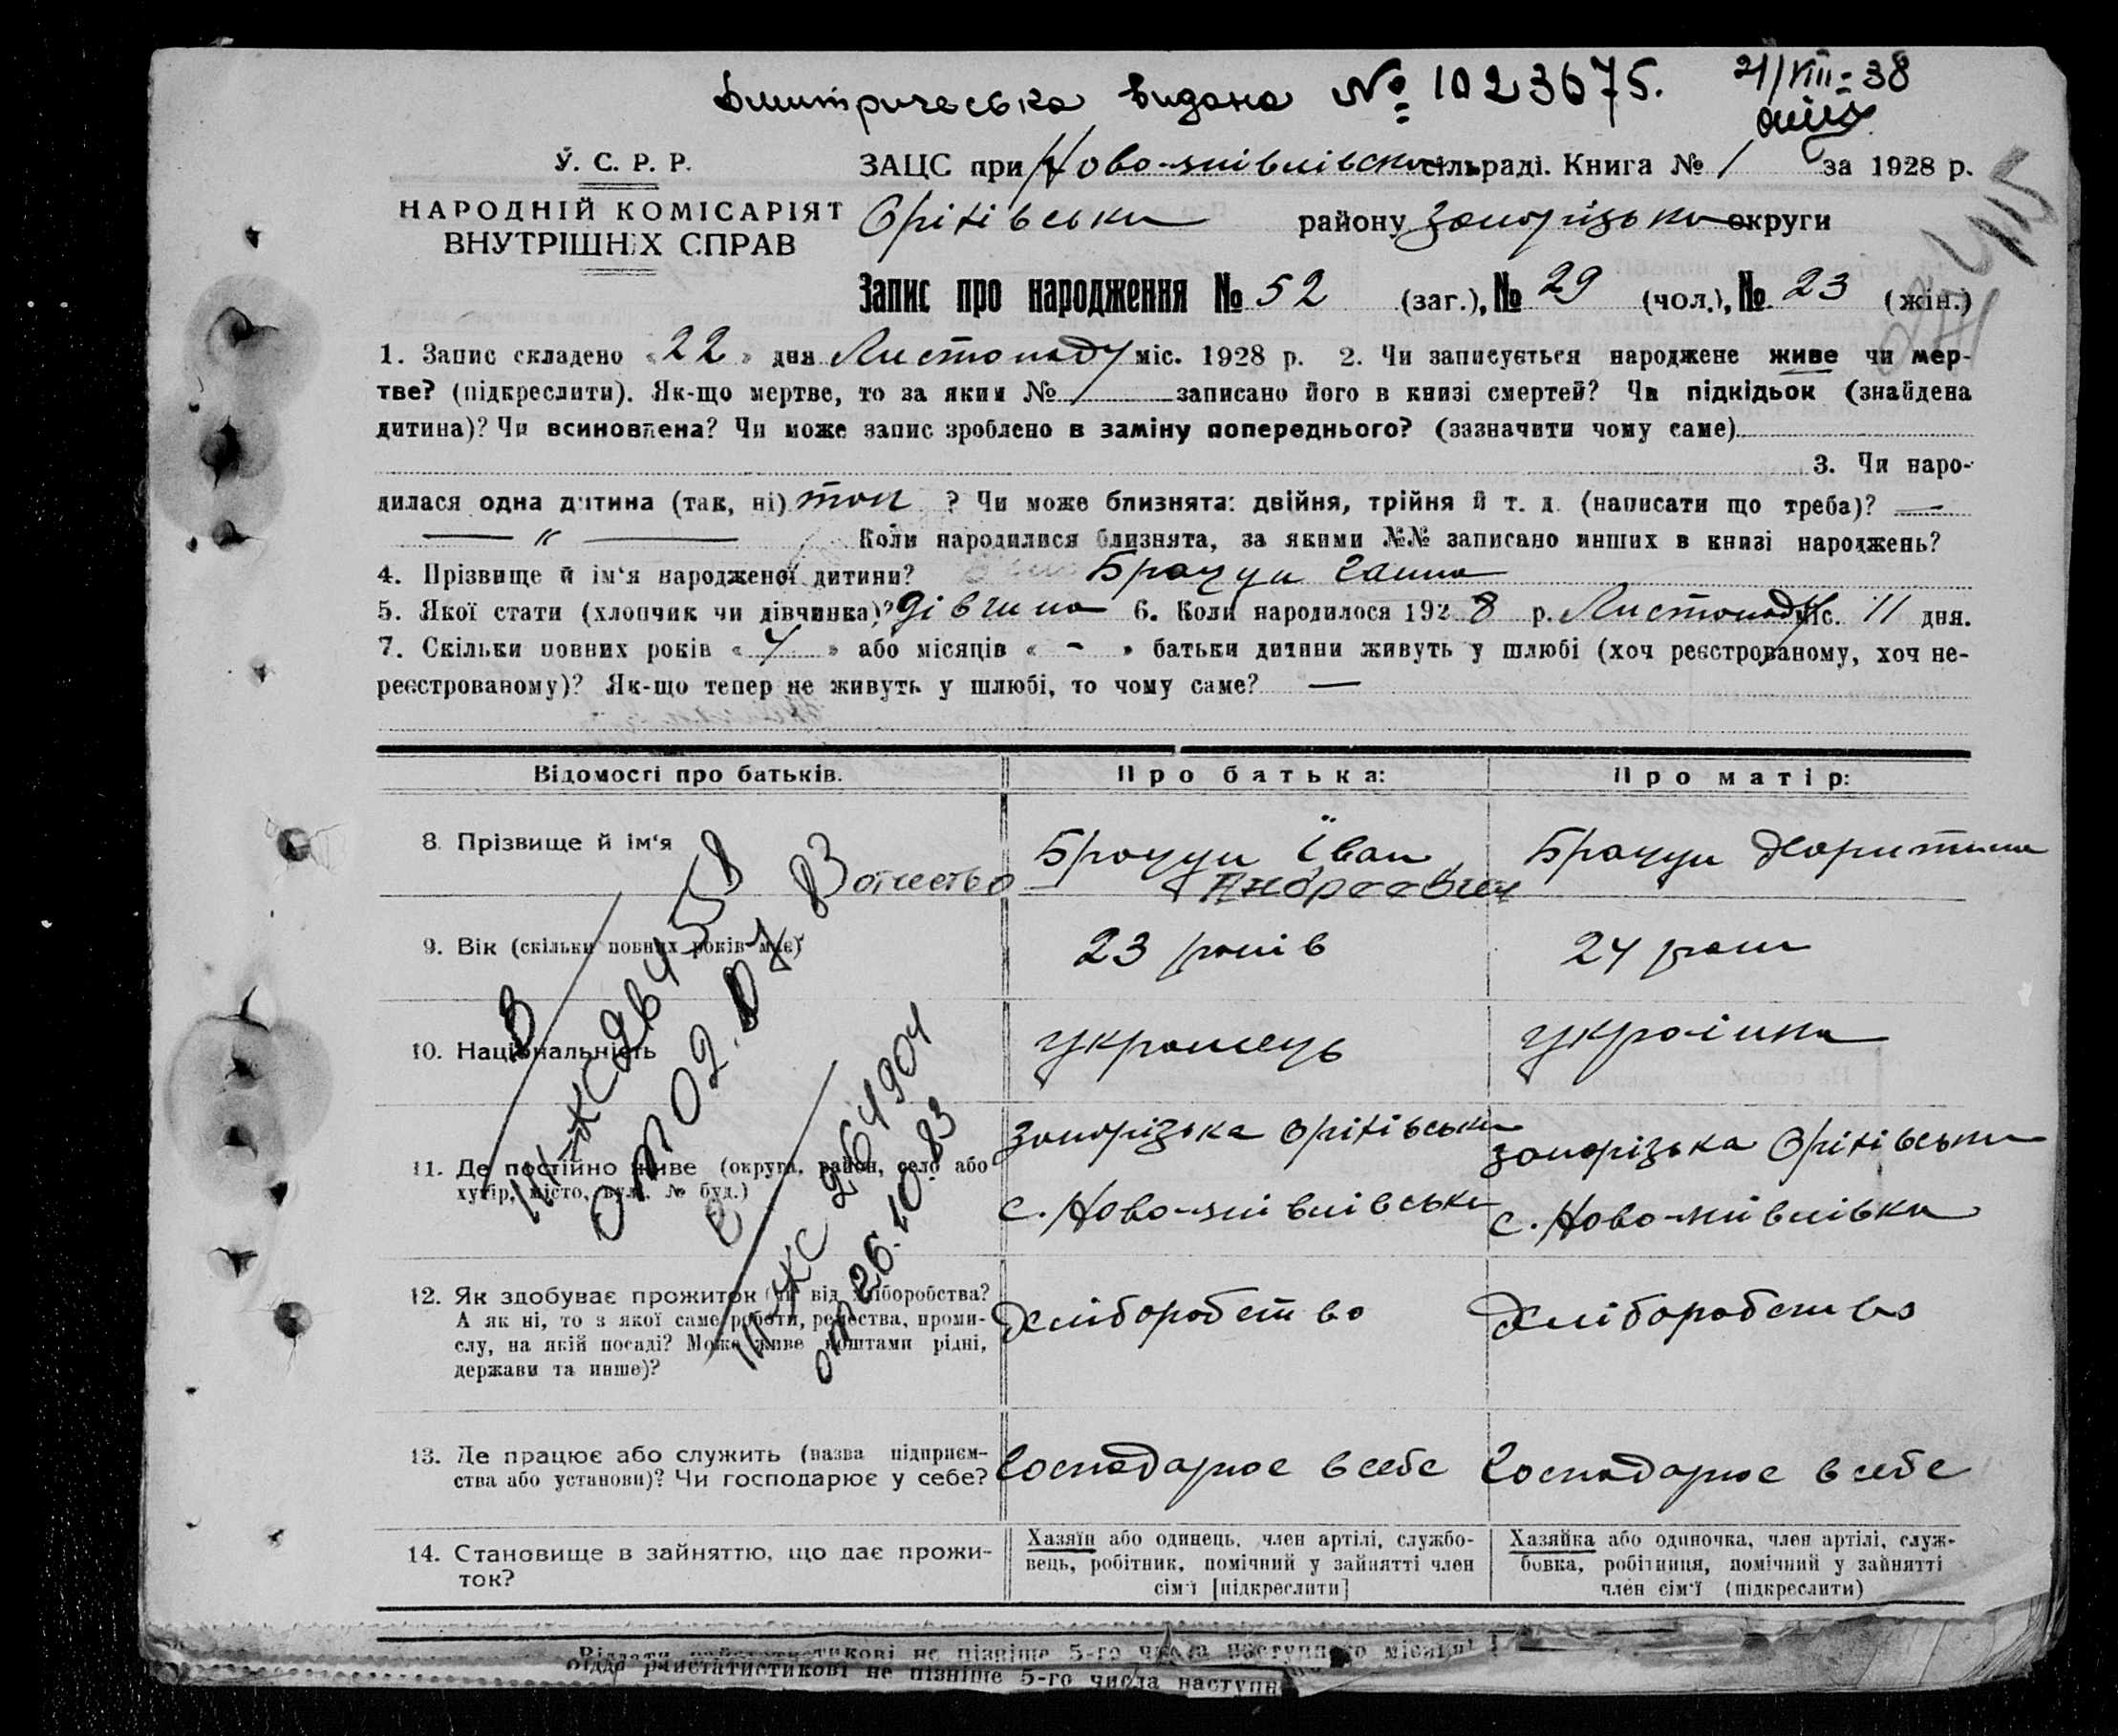 видана № 1023675. 21/VIII-38
У. С. Р. Р.
НАРОДНІЙ КОМІСАРІЯТ
ВНУТРІШНІХ СПРАВ
ЗАЦС при Ново-
сільраді. Книга № 1 за 1928 р.
Оріхівська району Запорізька округи
Запис про народження № 52 (заг.), № 29 (чол.), № 23 (жін.)
1. Запис складено «22» дня Листопаду міс. 1928 р. 2. Чи записується народжене живе чи мер-
тве? (підкреслити). Як-що мертве, то за яким № записано його в книзі смертей? Чи підкідьок (знайдена
дитина)? Чи всиновлена? Чи може запис зроблено в заміну попереднього? (зазначити чому саме)
3. Чи наро-
дилася одна дитина (так, ні) так ? Чи може близнята: двійня, трійня й т. д. (написати що треба)? —
— " — Коли народилися близнята, за якими №№ записано инших в книзі народжень?
4. Прізвище й ім'я народженої дитини? Ганна
5. Якої стати (хлопчик чи дівчинка)? дівчина 6. Коли народилося 1928 р. Листопаду міс. 11 дня.
7. Скільки повних років « » або місяців « - » батьки дитини живуть у шлюбі (хоч реєстрованому, хоч не-
реєстрованому)? Як-що тепер не живуть у шлюбі, то чому саме? —
Відомості про батьків. Про батька: Про матір:
8. Прізвище й ім'я
Іван
отчество Андреевич
9. Вік (скільки повних років має) 23 років 24 роки
10. Національність українець українка
11. Де постійно живе (округа, район, село або
хутір, місто, вул. № буд.)
Запорізька Оріхівська Запорізька Оріхівська
с. Ново- с. Ново-
12. Як здобуває прожиток (чи від хліборобства?
А як ні, то з якої саме роботи, ремества, проми-
слу, на якій посаді? Може живе коштами рідні,
держави та инше)?
Хліборобство Хліборобство
13. Де працює або служить (назва підприєм-
ства або установи)? Чи господарює у себе?
Господарює в себе Господарює в себе
14. Становище в зайняттю, що дає прожи-
ток?
Хазяїн або одинець, член артілі, службо-
вець, робітник, помічний у зайнятті член
сім'ї [підкреслити]
Хазяйка або одиночка, член артілі, служ-
бовка, робітниця, помічний у зайнятті
член сім'ї (підкреслити)
III-ЖС 264558
от 02.07.83
III-ЖС 264904
от 26.10.83
не пізніше 5-го числа наступного місяця!
райстатистикові не пізніше 5-го числа